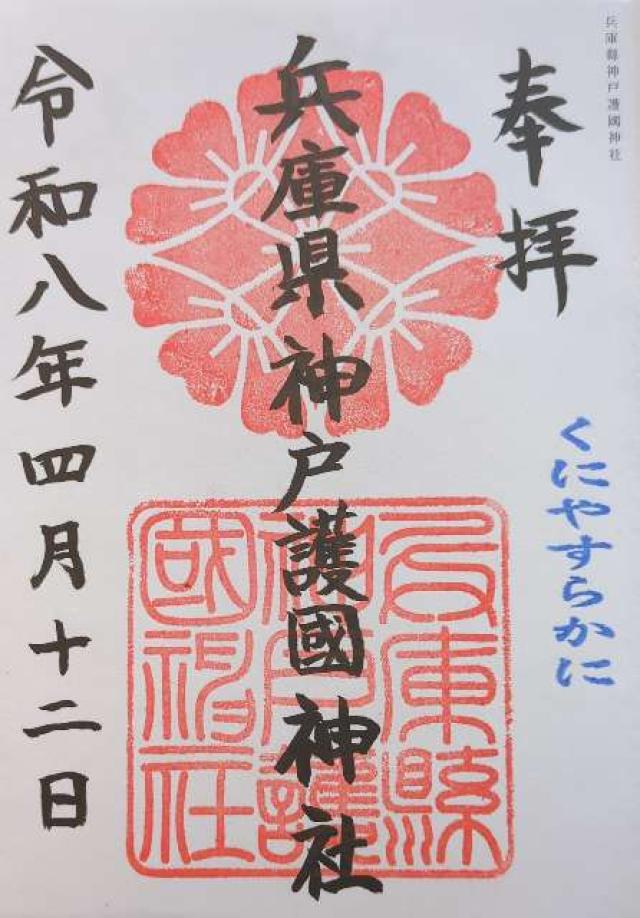 兵庫縣神戸護國神社
奉拝
くにやすらかに
兵庫県神戸護國神社
兵庫縣
神戸護
國神社
令和八年四月十二日